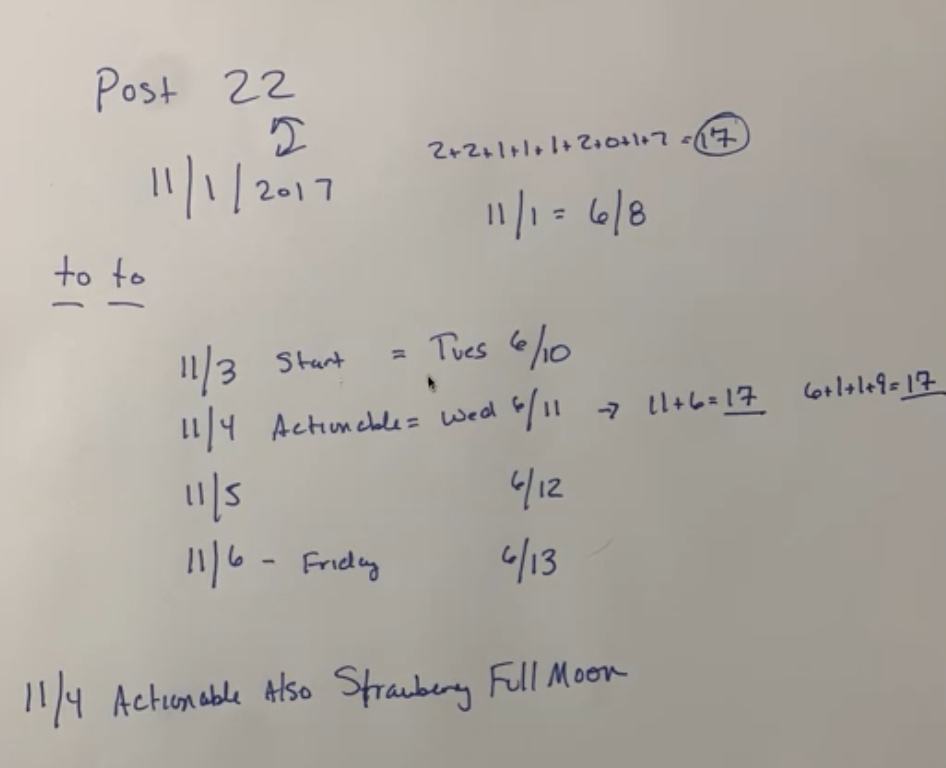 Post 22
2+2+1+1+1+2+0+1+7 = 17
11/1/2017
11/1 = 6/8
to to
11/3 Start = Tues 6/10
11/4 Actionable = Wed 6/11 → 11+6=17 6+1+1+9=17
11/5 6/12
11/6 - Friday 6/13
11/4 Actionable Also Strawberry Full Moon